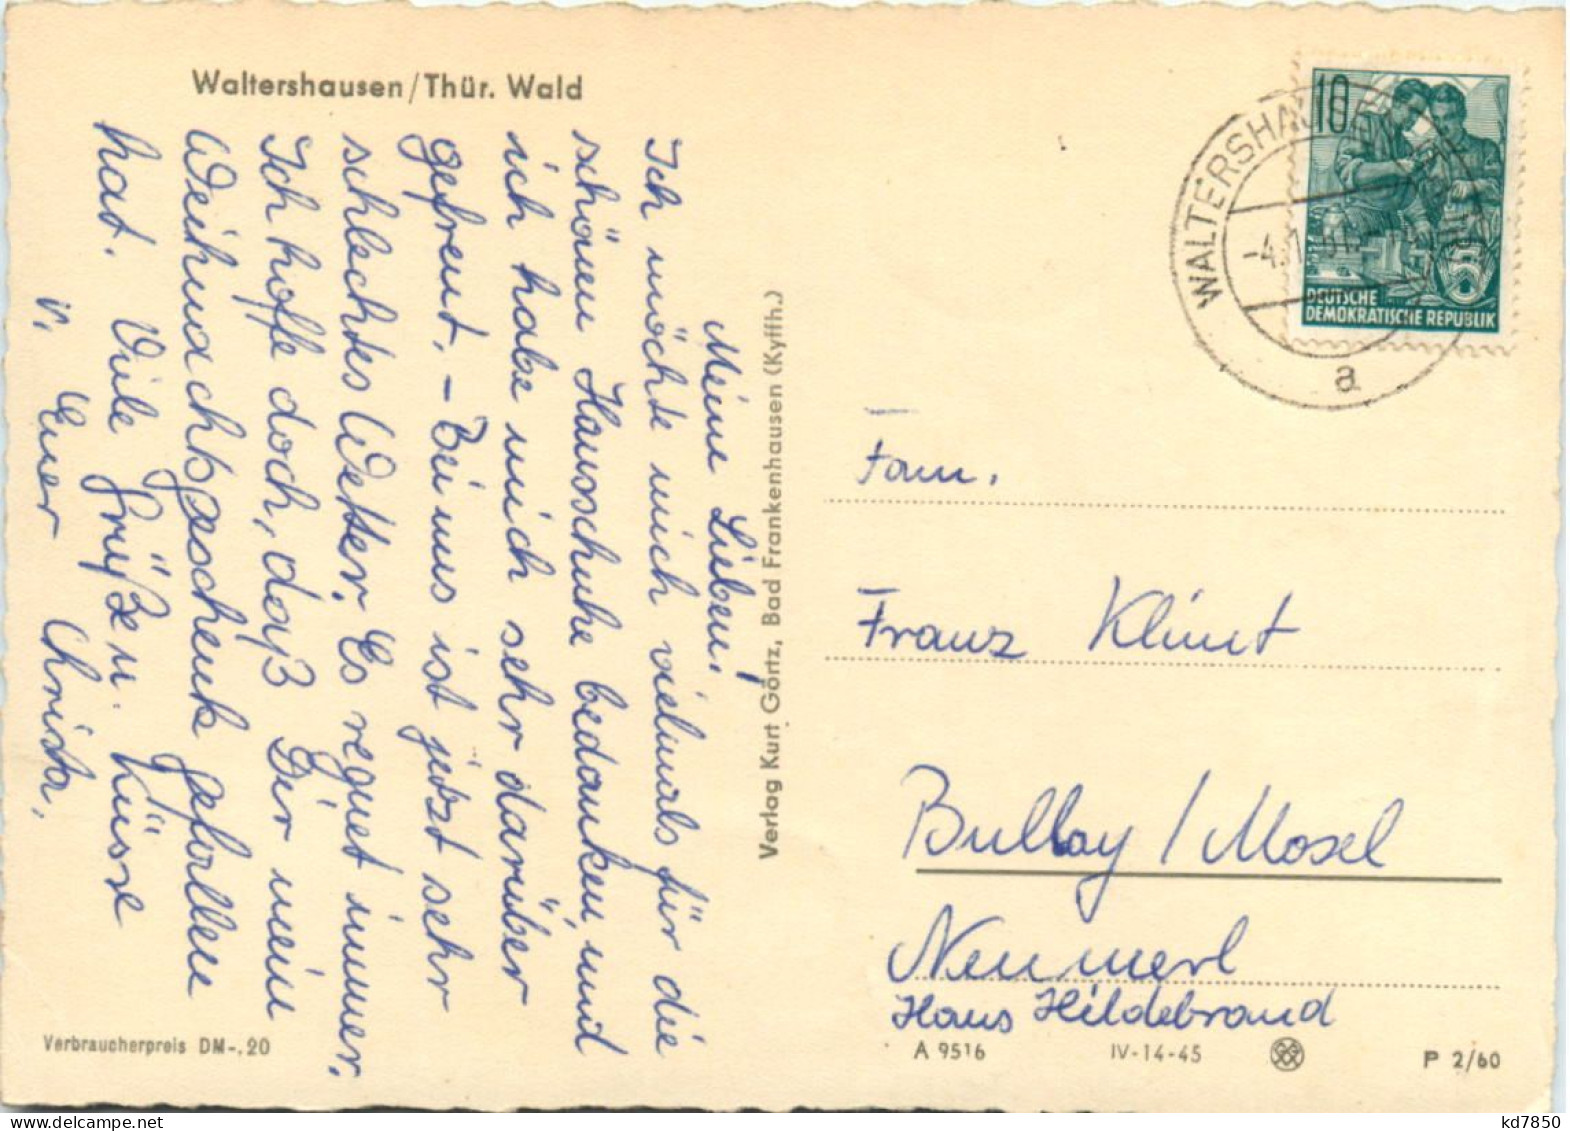 Waltershausen/Thür. Wald
Meine Lieben!
Ich möchte mich vielmals für die
schönen Hausschuhe bedanken, und
ich habe mich sehr darüber
gefreut. – Bei uns ist jetzt sehr
schlechtes Wetter. Es regnet immer.
Ich hoffe doch, daß Dir mein
Weihnachtsgeschenk gefallen
hat. Viele Grüße u. Küsse
v. Euer Christa.
Verbraucherpreis DM-.20
Verlag Kurt Görtz, Bad Frankenhausen (Kyffh.)
WALTERSHAUSEN
a
10
DEUTSCHE
DEMOKRATISCHE REPUBLIK
Fam.
Franz Klint
Bullay / Mosel
Neumerl
Haus Hildebrand
A 9516 IV-14-45 P 2/60
www.delcampe.net
kd7850